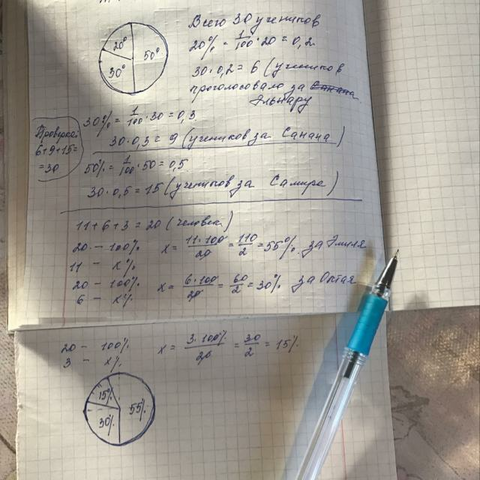 Всего 30 учеников
20% = 1/100 · 20 = 0,2
30 · 0,2 = 6 (учеников
проголосовало за
Эльнару
20° 50°
30°
30% = 1/100 · 30 = 0,3
30 · 0,3 = 9 (учеников за Санана)
Проверка:
6+9+15=
=30
50% = 1/100 · 50 = 0,5
30 · 0,5 = 15 (учеников за Самире)
11+6+3 = 20 (человек)
20 – 100% x = 11·100/20 = 110/2 = 55% за Эмиля
11 – x%
20 – 100% x = 6·100/20 = 60/2 = 30% за Октая
6 – x%
20 – 100% x = 3·100%/20 = 30/2 = 15%
3 – x%
15% 55%
30%